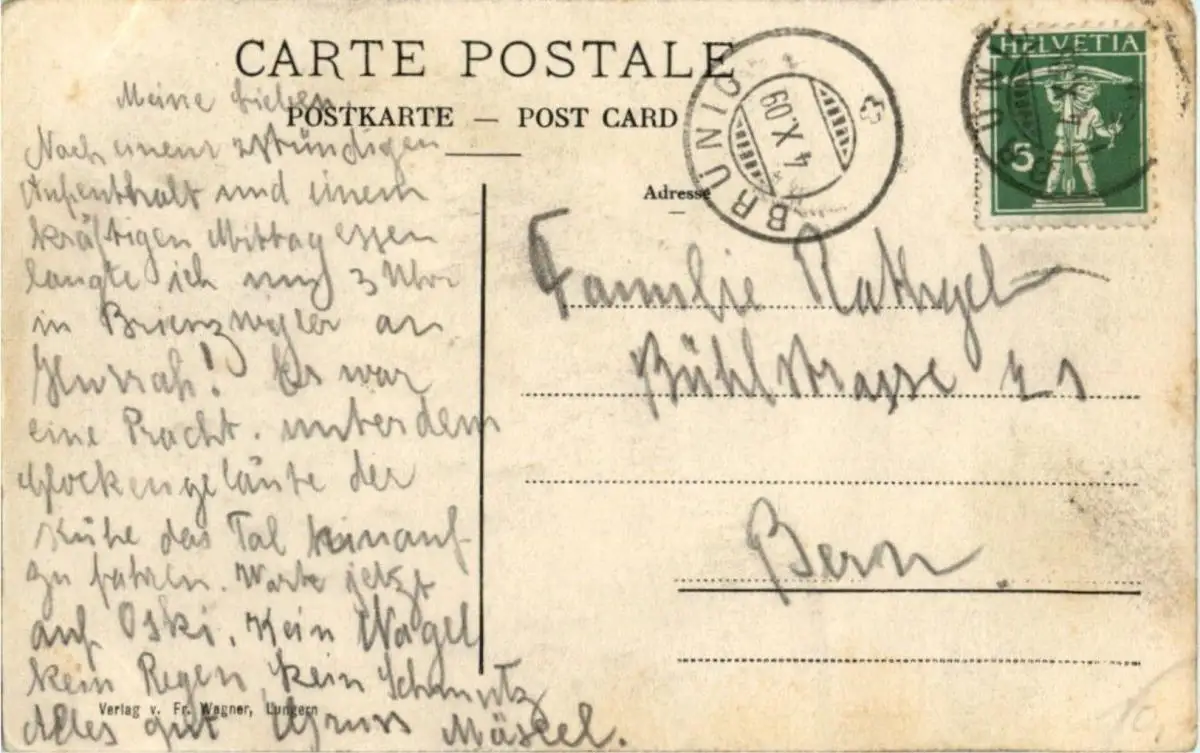 CARTE POSTALE
POSTKARTE — POST CARD
Adresse
BRÜNIG
4.X.09
HELVETIA
5
Meine Lieben
Nach einem 2stündigen
Aufenthalt und einem
kräftigen Mittagessen
langte ich um 3 Uhr
in Brienzwyler an
Hurrah! Es war
eine Pracht. unter dem
Glockengeläute der
Kühe das Tal hinauf
zu fahren. Warte jetzt
auf Oski. Kein Nagel
kein Regen, kein Schmutz
Alles gut Gruss
Familie
Bühlstrasse 21
Bern.
Verlag v. Fr. Wagner, Lungern